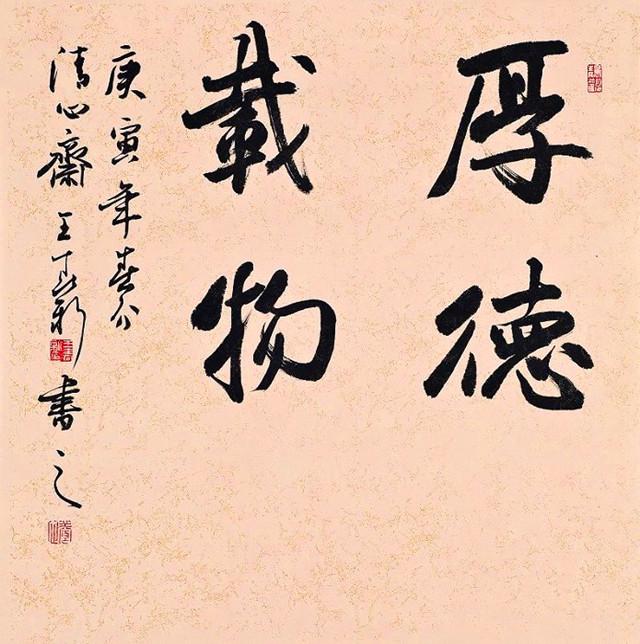 厚德
载物
庚寅年春分
清心斋王
书之